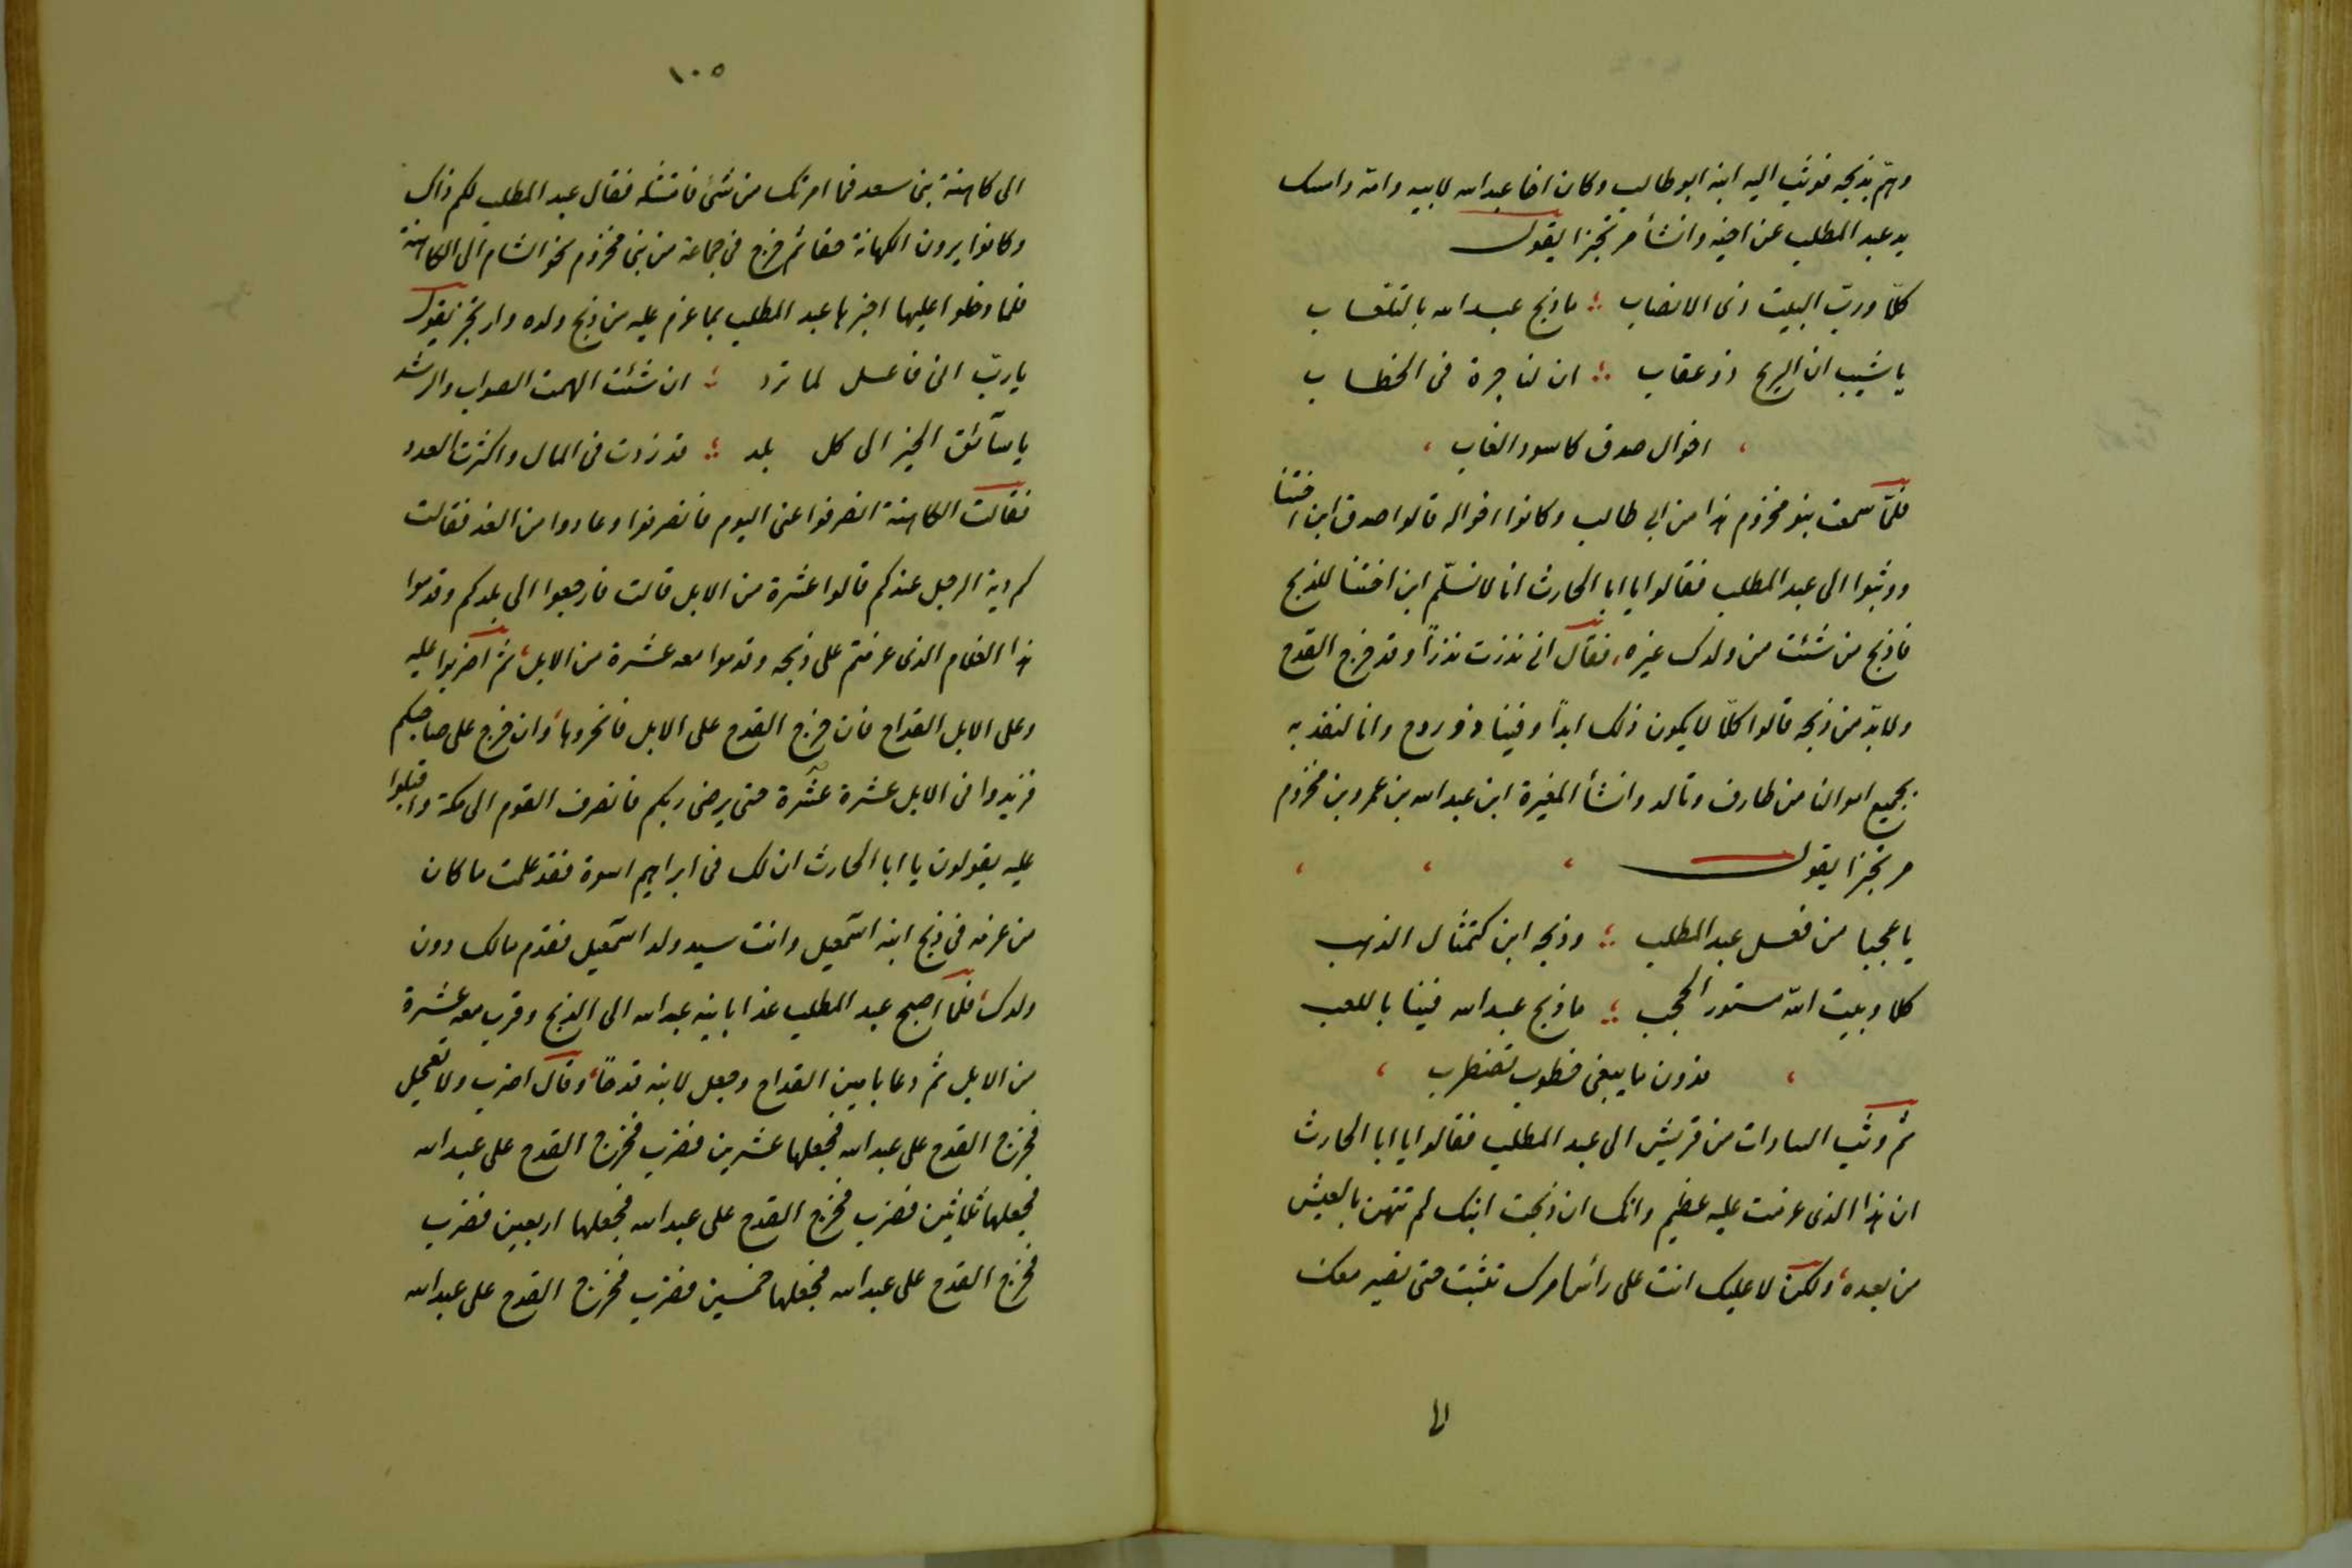 وهمّ بذبحه فوثب اليه ابنه ابو طالب وكان اخا عبد الله لابيه وامه وامسك
يد عبد المطلب عن اخيه وانشأ مرتجزا يقول
كلّا وربّ البيت ذى الانصاب ؛ ما ذبح عبد الله بالتلعاب
يا شيب ان الريح ذو عقاب ؛ ان لنا جرة فى الخطاب
، اخوال صدق كاسود الغاب ،
فلمّا سمعت بنو مخزوم هذا من ابى طالب وكانوا اخواله قالوا صدق ابن اختنا
ووثبوا الى عبد المطلب فقالوا يا ابا الحارث انا لا نسلّم ابن اختنا للذبح
فاذبح من شئت من ولدك غيره، فقال انى نذرت نذرًا وقد خرج القدح
ولابدّ من ذبحه قالوا كلّا لا يكون ذلك ابدًا وفينا ذو روح وانا لنفديه
بجميع اموالنا من طارف وتالد وانشأ المغيرة ابن عبد الله بن عمرو بن مخزوم
مرتجزا يقول ، ، ،
يا عجبا من فعل عبد المطلب ؛ وذبحه ابن كتمثال الذهب
كلا وبيت الله مستور الحجب ؛ ما ذبح عبد الله فينا باللعب
، فدون ما يبغى خطوب تضطرب ،
ثم وثب السادات من قريش الى عبد المطلب فقالوا يا ابا الحارث
ان هذا الذى عزمت عليه عظيم وانك ان ذبحت ابنك لم تتهن بالعيش
من بعده، ولكن لا عليك انت على رأس امرك تثبت حتى نصير معك
الى
١٠٥
الى كاهنة بنى سعد فما امرتك من شئ فامتثله فقال عبد المطلب لكم ذاك
وكانوا يرون الكهانة حقا ثم خرج فى جماعة من بنى مخزوم نحو الشام الى الكاهنة
فلما دخلوا عليها اخبرها عبد المطلب بما عزم عليه من ذبح ولده وارتجز يقول
يا ربّ انى فاعل لما ترد ؛ ان شئت الهمت الصواب والرشد
يا سآئق الخير الى كل بلد ؛ قد زدت فى المال واكثرت العدد
فقالت الكاهنة انصرفوا عنى اليوم فانصرفوا وعادوا من الغد فقالت
كم دية الرجل عندكم قالوا عشرة من الابل قالت فارجعوا الى بلدكم وقدموا
هذا الغلام الذى عزمتم على ذبحه وقدموا معه عشرة من الابل، ثم اضربوا عليه
وعلى الابل القداح فان خرج القدح على الابل فانحروها، وان خرج على صاحبكم
فزيدوا فى الابل عشرة عشرة حتى يرضى ربكم فانصرف القوم الى مكة واقبلوا
عليه يقولون يا ابا الحارث ان لك فى ابراهيم اسوة فقد علمت ما كان
من عزمه فى ذبح ابنه اسمعيل وانت سيد ولد اسمعيل فقدّم مالك دون
ولدك، فلمّا اصبح عبد المطلب غدا بابنه عبد الله الى الذبح وقرب معه عشرة
من الابل ثم دعا بامين القداح وجعل لابنه قدحًا، وقال اضرب ولا تعجل
فخرج القدح على عبد الله فجعلها عشرين فضرب فخرج القدح على عبد الله
فجعلها ثلاثين فضرب فخرج القدح على عبد الله فجعلها اربعين فضرب
فخرج القدح على عبد الله فجعلها خمسين فضرب فخرج القدح على عبد الله